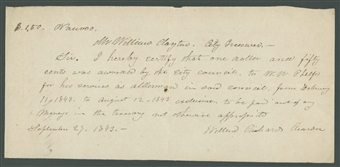 $1,50. Nauvoo.
Mr William Clayton. City Treasurer.—
Sir. I hereby certify that one dollar and fifty
cents was awarded by the city council, to W. W. Phelps
for his services as alderman in said council, from February
11, 1843. to August 12, 1843 inclusive to be paid out of any
Moneys in the treasury not otherwise appropriated
September 27. 1843.—
Willard Richards Recorder